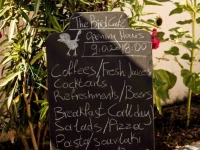 The Bird Café
Opening Hours
9:00 - 18:00
Coffees/Fresh Juices
Cocktails
Refreshments/Beers
Breakfast (all day)
Salads/Pizza
Pasta/Souvlaki